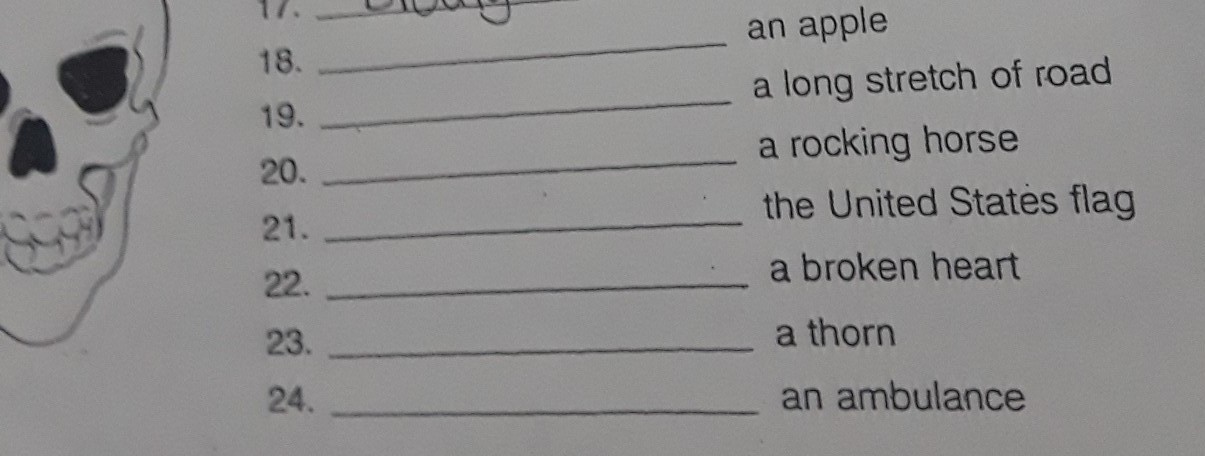 17.
18. an apple
19. a long stretch of road
20. a rocking horse
21. the United States flag
22. a broken heart
23. a thorn
24. an ambulance